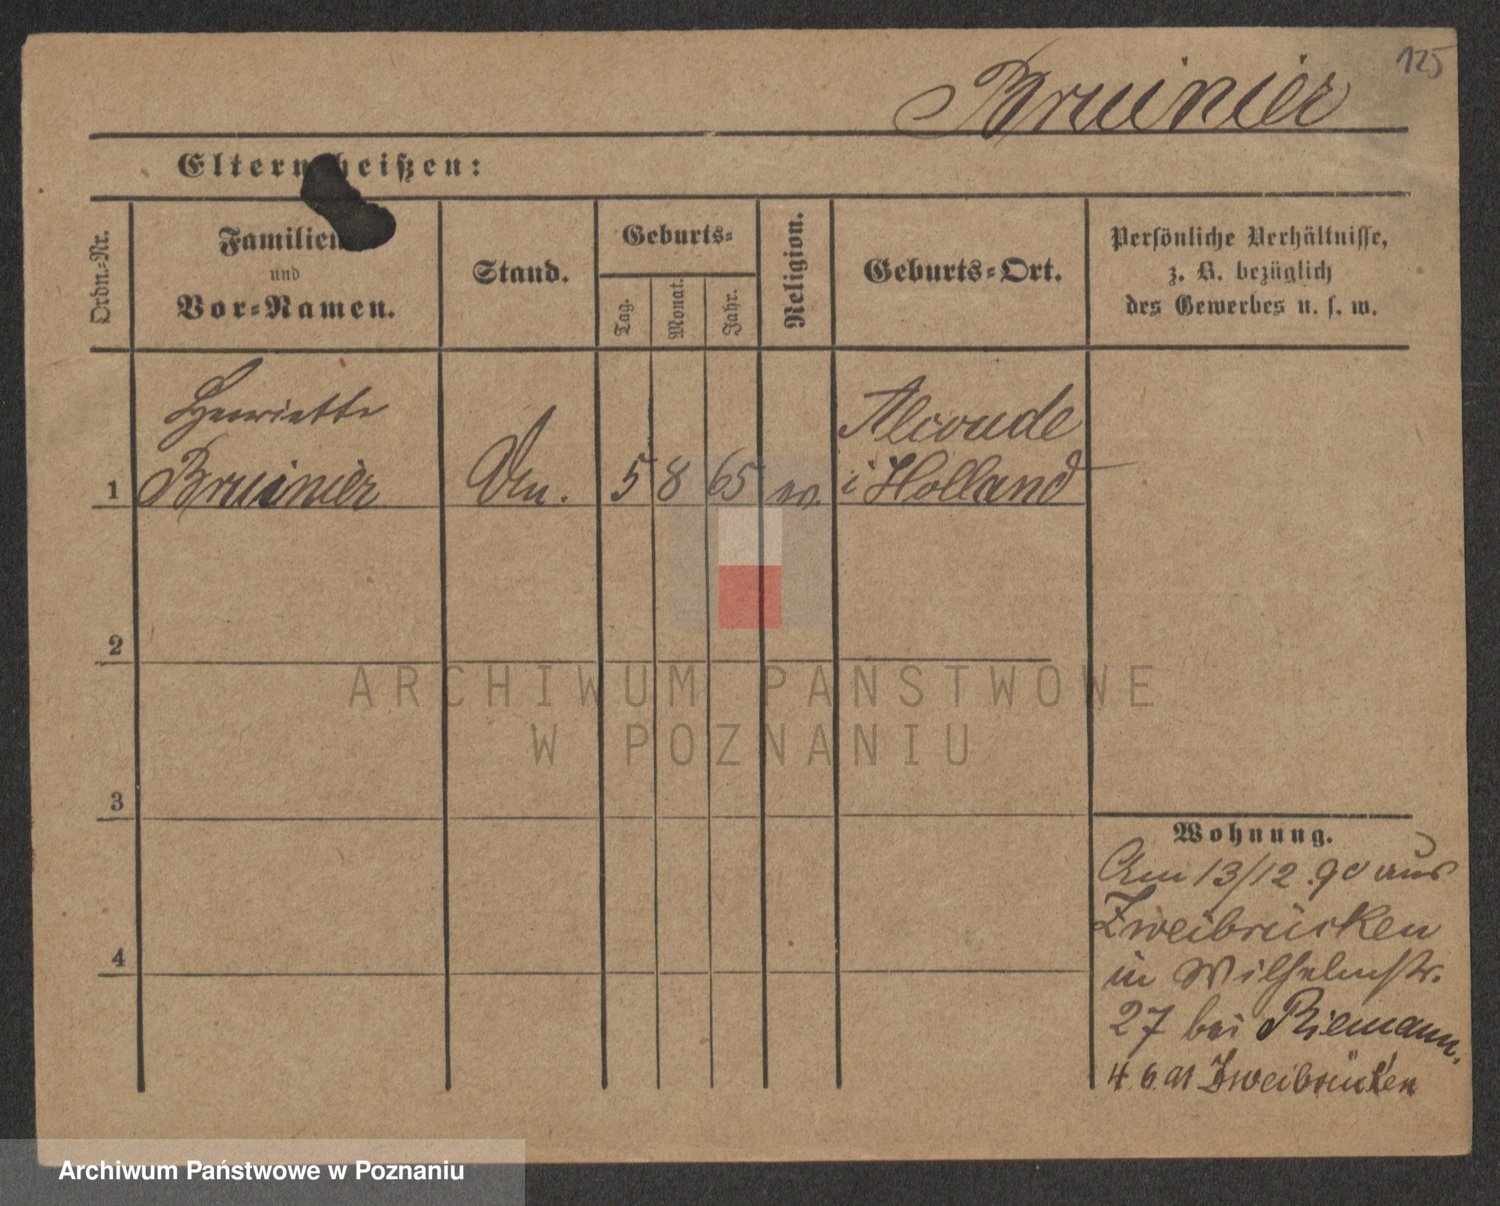 125
Bruinier
Eltern heißen:
Ordn.-Nr.
Familien
und
Vor-Namen.
Stand.
Geburts-
Tag.
Monat.
Jahr.
Religion.
Geburts-Ort.
Persönliche Verhältnisse,
z. B. bezüglich
des Gewerbes u. s. w.
Henriette
Bruinier
1
5 8 65
Abcoude
i Holland
2
3
4
ARCHIWUM PAŃSTWOWE
W POZNANIU
Wohnung.
Am 13/12.90 aus
Zweibrücken
in Wilhelmstr.
27 bei Riemann.
4.6.91 Zweibrücken
Archiwum Państwowe w Poznaniu